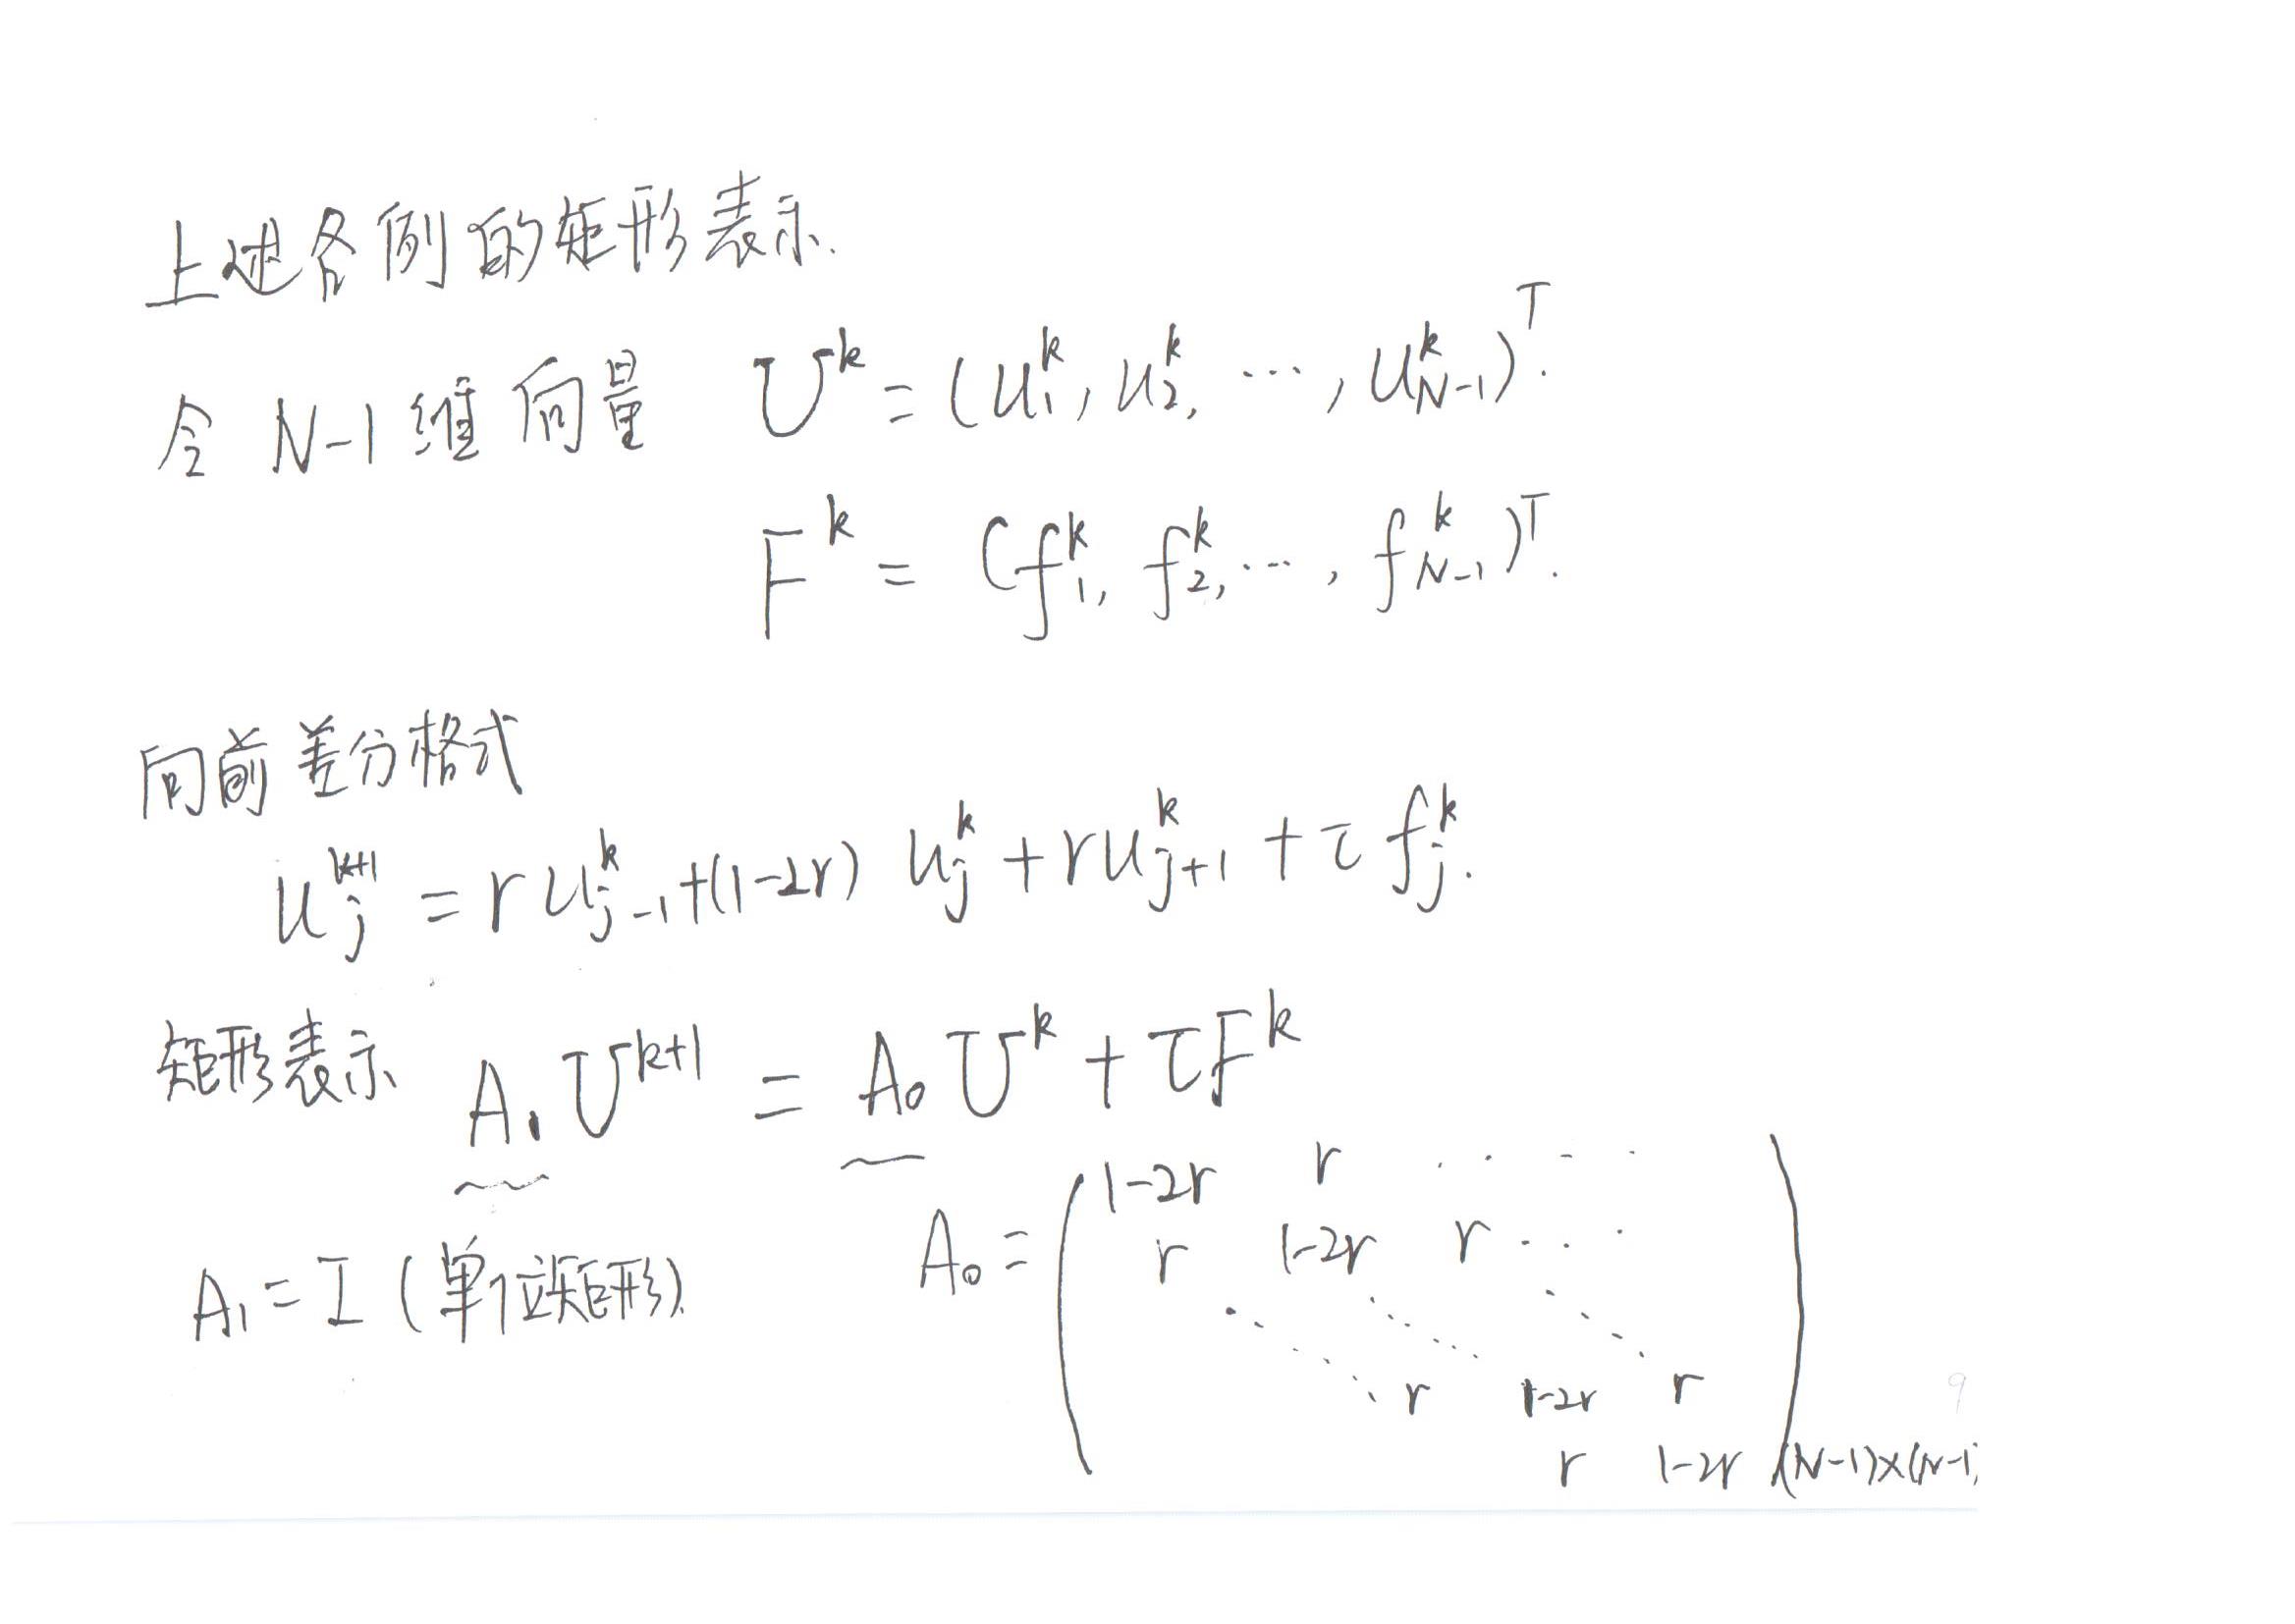 上述各例的矩形表示.
令 N-1 维向量 U^k = (u_1^k, u_2^k, ⋯, u_{N-1}^k)^T.
F^k = (f_1^k, f_2^k, ⋯, f_{N-1}^k)^T.
向前差分格式
u_j^{k+1} = r u_{j-1}^k + (1-2r) u_j^k + r u_{j+1}^k + τ f_j^k.
矩形表示 A_1 U^{k+1} = A_0 U^k + τ F^k
1-2r r ⋯
A_1 = I (单位矩形). A_0 = r 1-2r r ⋯
r 1-2r r
r 1-2r (N-1)×(N-1)
9